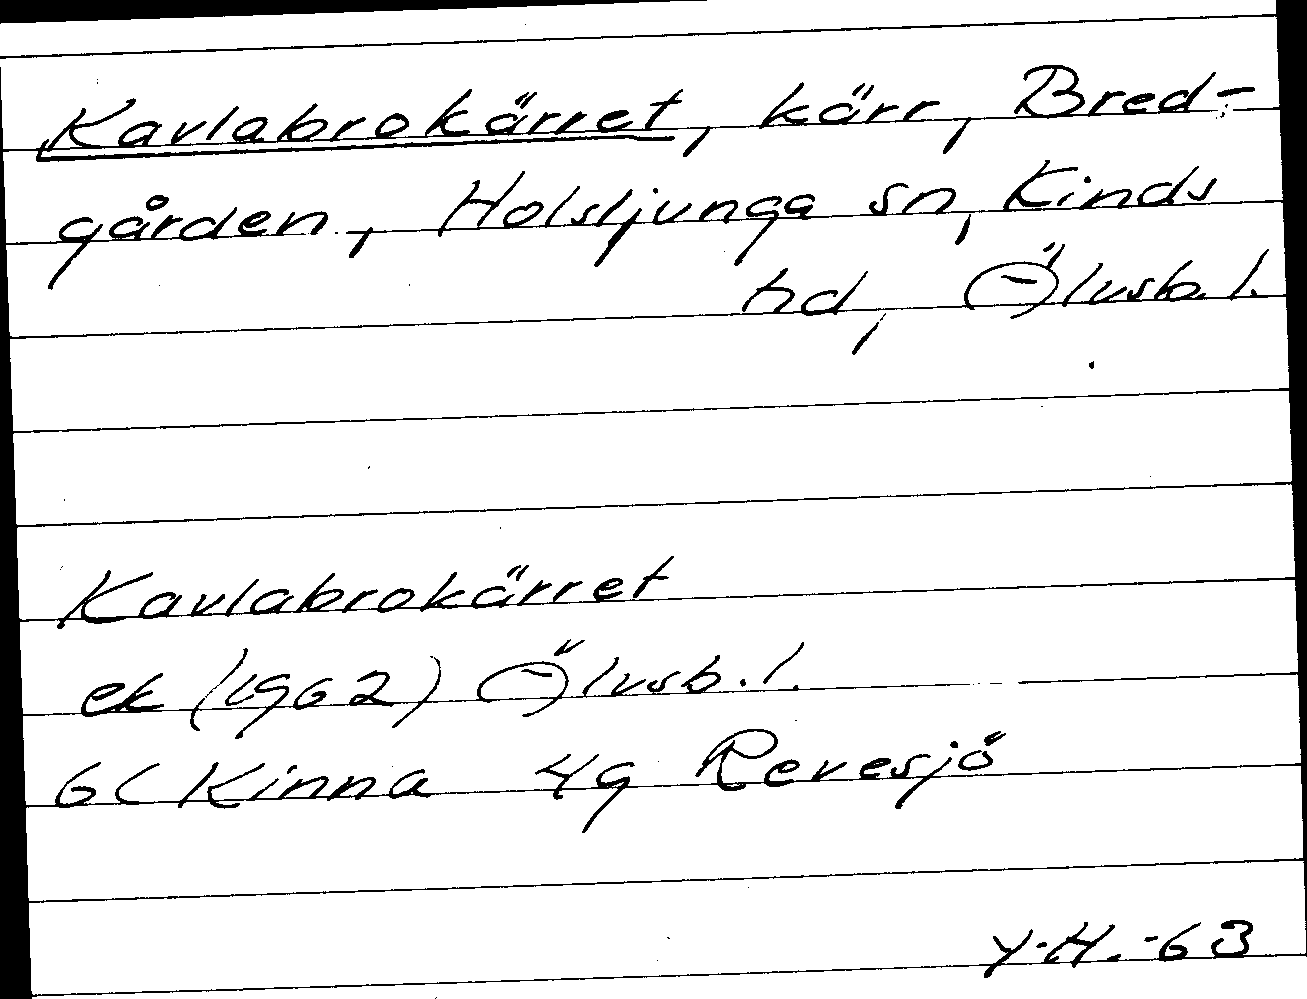 Kavlabrokärret, kärr, Bred-
gården, Holsljunga sn, Kinds
hd, Älvsb. l.
Kavlabrokärret
ek (1962) Älvsb. l.
6C Kinna 4g Revesjö
Y.H. -63